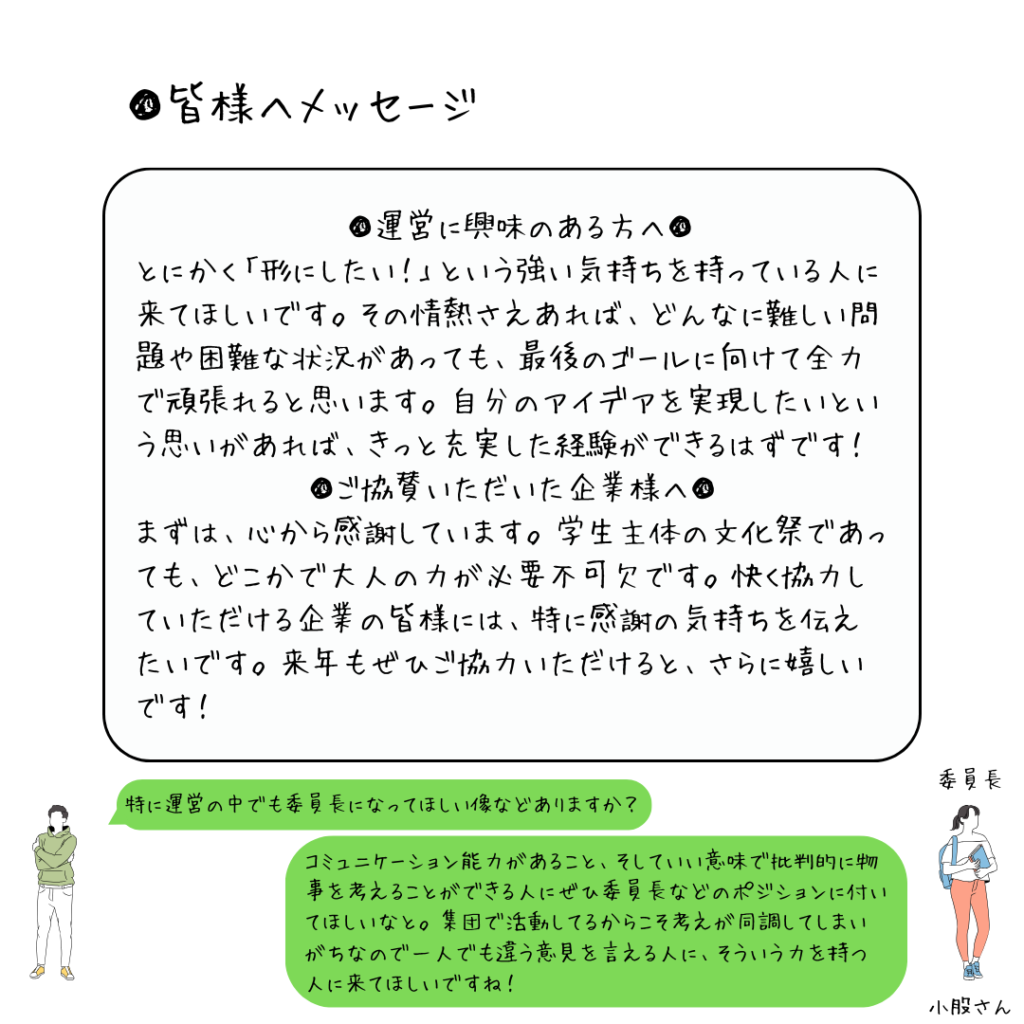 ●皆様へメッセージ
●運営に興味のある方へ●
とにかく「形にしたい！」という強い気持ちを持っている人に
来てほしいです。その情熱さえあれば、どんなに難しい問
題や困難な状況があっても、最後のゴールに向けて全力
で頑張れると思います。自分のアイデアを実現したいとい
う思いがあれば、きっと充実した経験ができるはずです！
●ご協賛いただいた企業様へ●
まずは、心から感謝しています。学生主体の文化祭であっ
ても、どこかで大人の力が必要不可欠です。快く協力し
ていただける企業の皆様には、特に感謝の気持ちを伝え
たいです。来年もぜひご協力いただけると、さらに嬉しい
です！
特に運営の中でも委員長になってほしい像などありますか？
委員長
コミュニケーション能力があること、そしていい意味で批判的に物
事を考えることができる人にぜひ委員長などのポジションに付い
てほしいなと。集団で活動してるからこそ考えが同調してしまい
がちなので一人でも違う意見を言える人に、そういう力を持つ
人に来てほしいですね！
小股さん